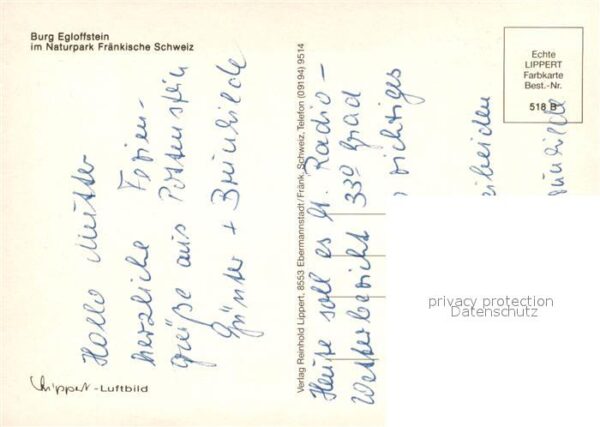 Burg Egloffstein
im Naturpark Fränkische Schweiz
Hallo Mutter
herzliche Ferien-
grüße aus Pottenstein
Günter + Brunhilde
Verlag Reinhold Lippert, 8553 Ebermannstadt/Fränk. Schweiz, Telefon (09194) 9514
Heute soll es lt. Radio-
Wetterbericht 33° Grad
richtiges
Echte
LIPPERT
Farbkarte
Best.-Nr.
518 B
privacy protection
Datenschutz
Lippert-Luftbild